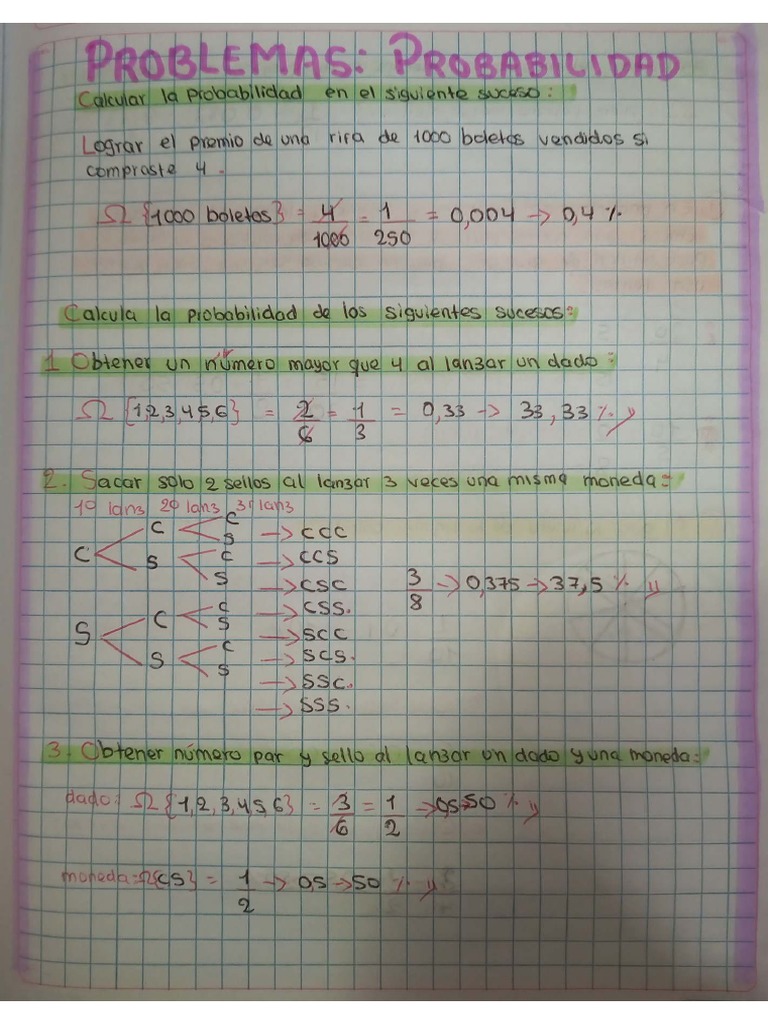 PROBLEMAS: PROBABILIDAD
Calcular la Probabilidad en el siguiente suceso:
Lograr el premio de una rifa de 1000 boletos vendidos si
compraste 4.
Ω {1000 boletos} = 4/1000 = 1/250 = 0,004 → 0,4 %
Calcula la probabilidad de los siguientes sucesos:
1 Obtener un número mayor que 4 al lanzar un dado:
Ω {1,2,3,4,5,6} = 2/6 = 1/3 = 0,33 → 33,33 %
2. Sacar solo 2 sellos al lanzar 3 veces una misma moneda:
1º lanz 2º lanz 3º lanz
C C C → CCC
S → CCS
S C → CSC
S → CSS.
S C C → SCC
S → SCS.
S C → SSC.
S → SSS.
3/8 → 0,375 → 37,5 %
3. Obtener número par y sello al lanzar un dado y una moneda:
dado: Ω {1,2,3,4,5,6} = 3/6 = 1/2 → 0,5 50 %
moneda: Ω{CS} = 1/2 → 0,5 → 50 %